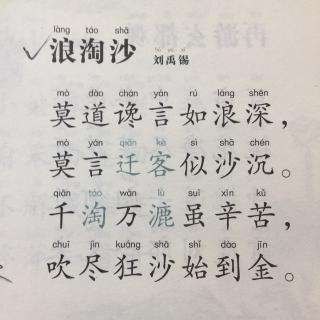 làng táo shā
浪淘沙
刘禹锡
mò dào chán yán rú làng shēn
莫道谗言如浪深，
mò yán qiān kè sì shā chén
莫言迁客似沙沉。
qiān táo wàn lù suī xīn kǔ
千淘万漉虽辛苦，
chuī jìn kuáng shā shǐ dào jīn
吹尽狂沙始到金。